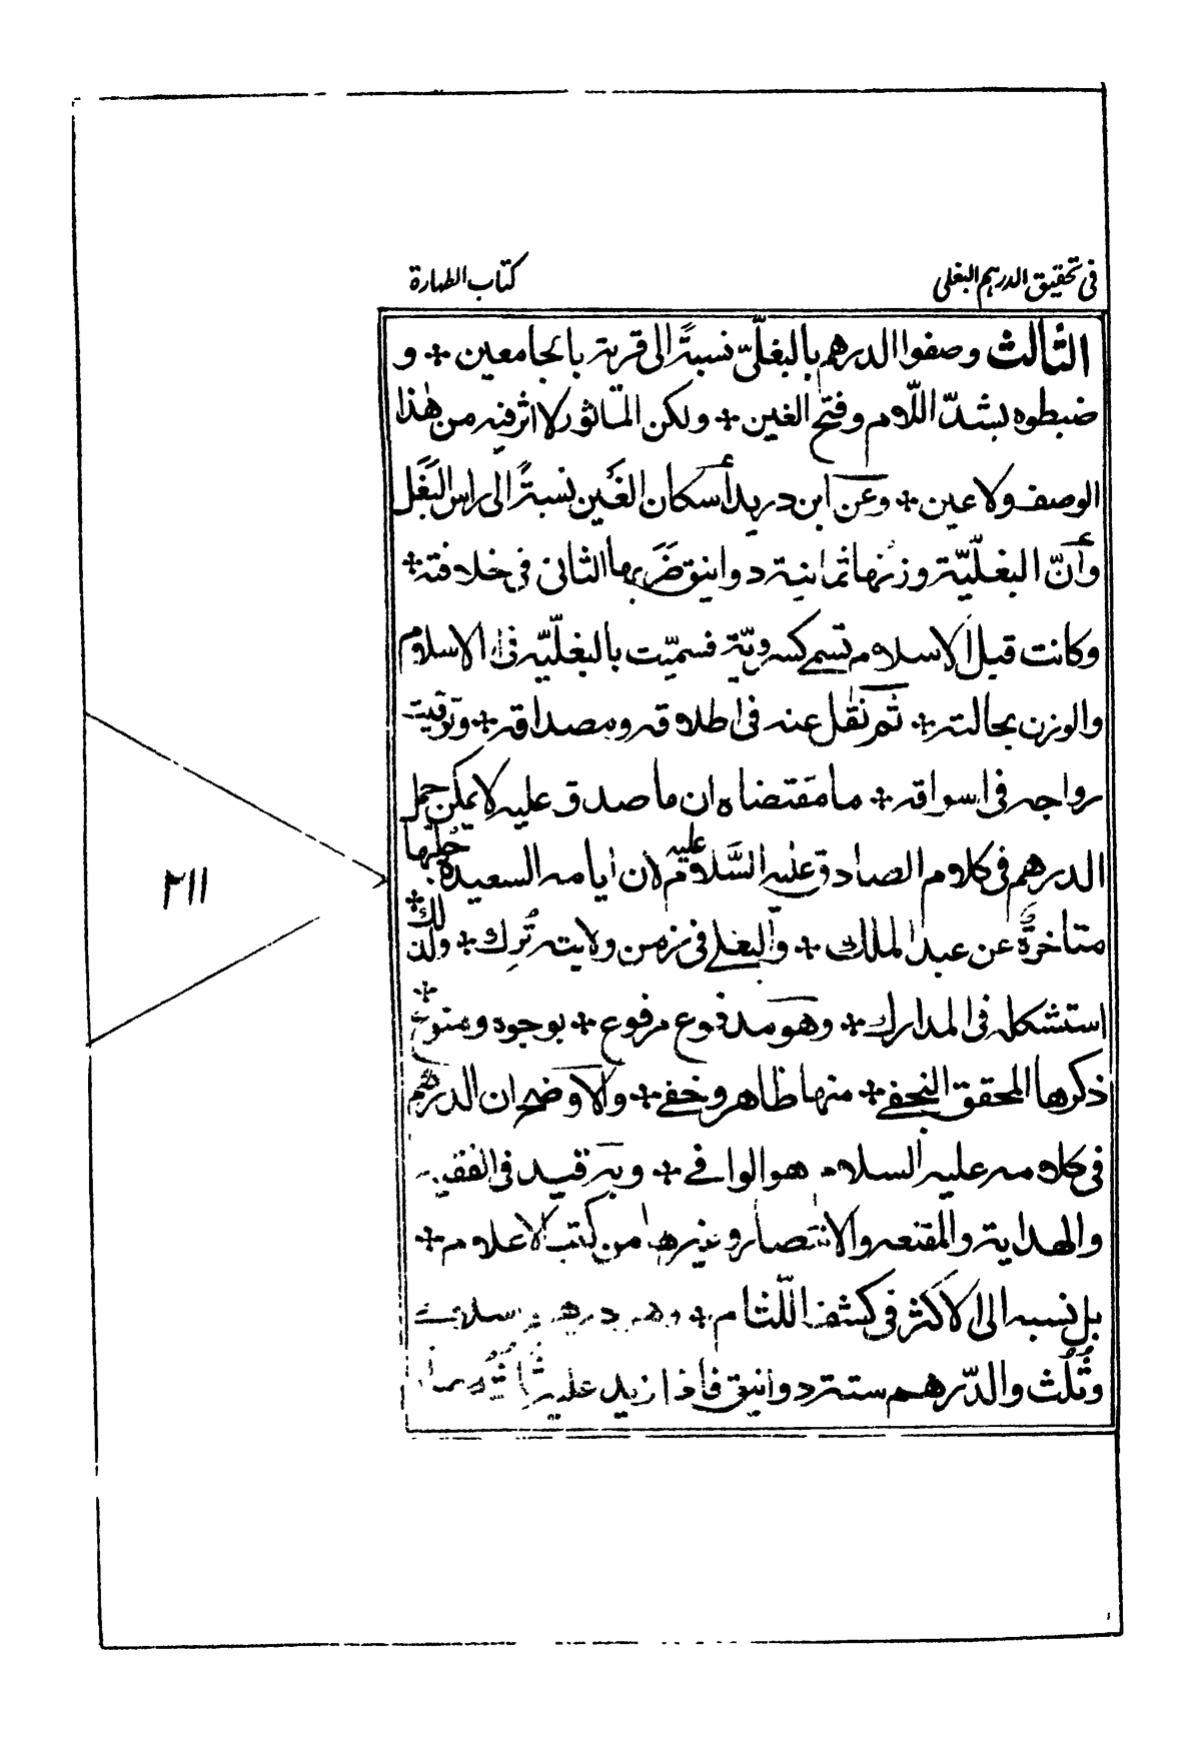 فى تحقيق الدرهم البغلى
كتاب الطهارة
الثالث وصفوا الدرهم بالبغلّىّ نسبةً الى قرية بالجامعين + و
ضبطوه بشدّ اللّام وفتح الغين + ولكن المأثور لا اثر فيه من هٰذا
الوصف ولا عين + وعَن ابن دريد أسكان الغَين نسبةً الى راس البَغَل
وأَنّ البغلّيّة وزنها ثمانية دوانيق ضَرَبها الثانى فى خلافته +
وكانت قبل الاسلام تسمى كسرويّة فسميّت بالبغلّيّه فى الاسلام
والوزن بحالته + ثم نقل عنه فى اطلاقه ومصداقه + وتوقيت
رواجه فى اسواقه + ما مقتضاه ان ما صدق عليه لا يمكن حمل
الدرهم فى كلام الصادق عليه السَّلام عليه لان ايامه السعيدة كلها
متاخرةً عن عبد الملك + والبغلى فى زمن ولايته تُرِك + ولذلك +
استشكله فى المدارك + وهو مدفوع مرفوع + بوجوه ومنوع +
ذكرها المحقق النجفى + منها ظاهر وخفى + والاوضح ان الدرهم
فى كلامه عليه السلام هو الوافى + وبه قيد فى الفقيه
والهداية والمقنعه والانتصار وغيرها من كتب الاعلام +
بل نسبه الى الاكثر فى كشف اللّثام + وهو درهم اسلامى
وثُلُث والدّرهم ستة دوانيق فاذا زيد عليه ثُلُثه
٢١١